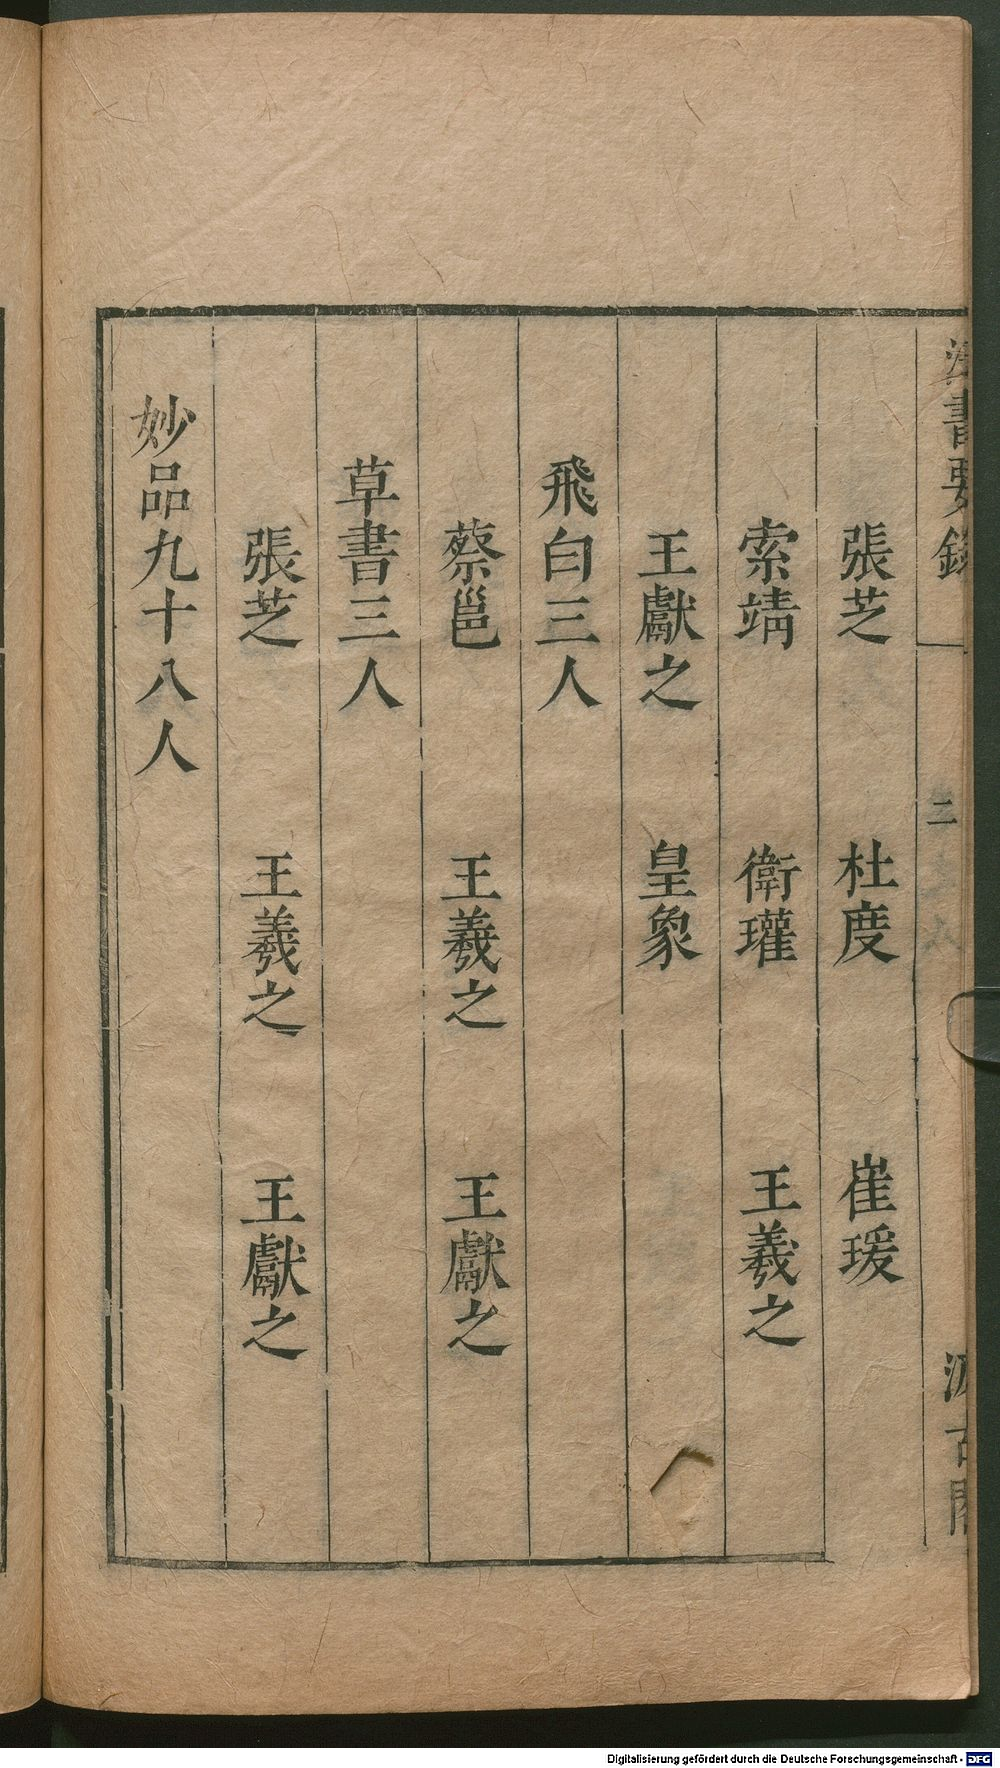 法書要錄
二
汲古閣
張芝 杜度 崔瑗
索靖 衛瓘 王羲之
王獻之 皇象
飛白三人
蔡邕 王羲之 王獻之
草書三人
張芝 王羲之 王獻之
妙品九十八人
Digitalisierung gefördert durch die Deutsche Forschungsgemeinschaft - DFG